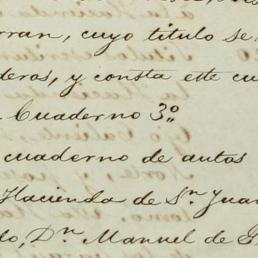 rran, cuyo titulo se
deros, y consta este cu
Cuaderno 3º
cuaderno de autos
Hacienda de Sn. Juan
do, Dn. Manuel de